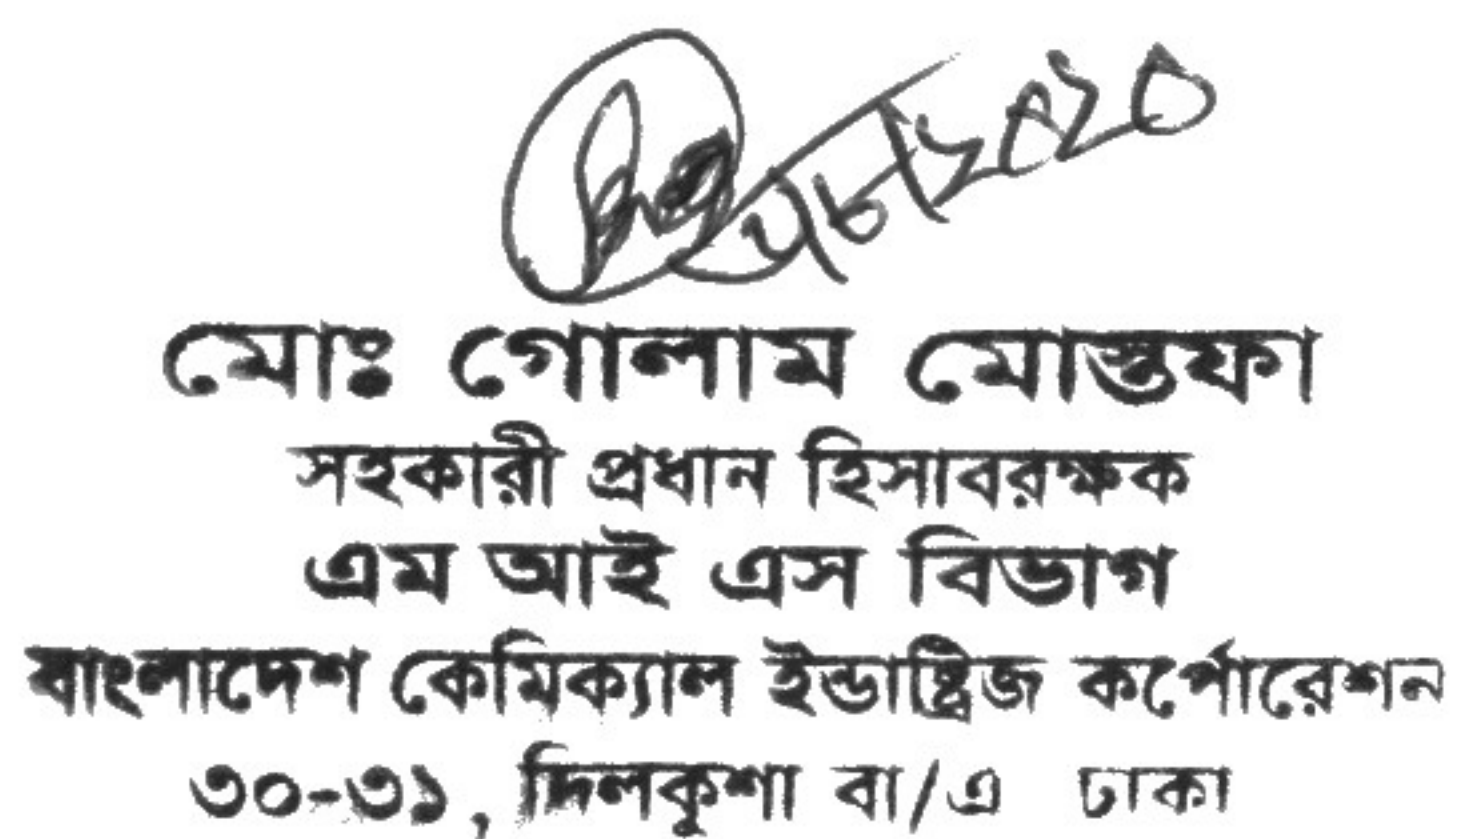 মোঃ গোলাম মোস্তফা
সহকারী প্রধান হিসাবরক্ষক
এম আই এস বিভাগ
বাংলাদেশ কেমিক্যাল ইন্ডাষ্ট্রিজ কর্পোরেশন
৩০-৩১, দিলকুশা বা/এ ঢাকা